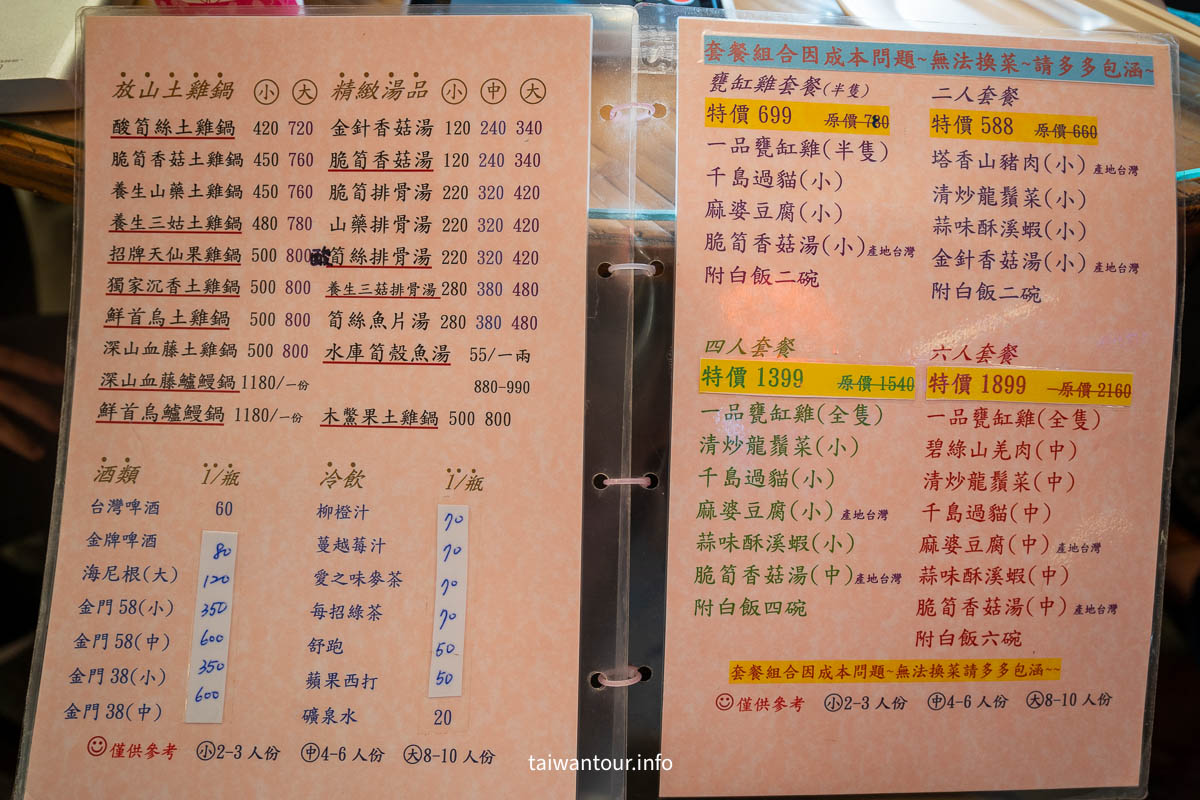 放山土雞鍋 小 大
酸筍絲土雞鍋 420 720
脆筍香菇土雞鍋 450 760
養生山藥土雞鍋 450 760
養生三姑土雞鍋 480 780
招牌天仙果雞鍋 500 800
獨家沉香土雞鍋 500 800
鮮首烏土雞鍋 500 800
深山血藤土雞鍋 500 800
深山血藤鱸鰻鍋 1180/一份
鮮首烏鱸鰻鍋 1180/一份
精緻湯品 小 中 大
金針香菇湯 120 240 340
脆筍香菇湯 120 240 340
脆筍排骨湯 220 320 420
山藥排骨湯 220 320 420
酸筍絲排骨湯 220 320 420
養生三菇排骨湯 280 380 480
筍絲魚片湯 280 380 480
水庫筍殼魚湯 55/一兩
880-990
木鱉果土雞鍋 500 800
酒類 1/瓶
台灣啤酒 60
金牌啤酒 80
海尼根(大) 120
金門58(小) 350
金門58(中) 600
金門38(小) 350
金門38(中) 600
冷飲 1/瓶
柳橙汁 70
蔓越莓汁 70
愛之味麥茶 70
每招綠茶 70
舒跑 50
蘋果西打 50
礦泉水 20
僅供參考 小2-3人份 中4-6人份 大8-10人份
套餐組合因成本問題~無法換菜~請多多包涵~
甕缸雞套餐(半隻)
特價 699 原價 780
一品甕缸雞(半隻)
千島過貓(小)
麻婆豆腐(小)
脆筍香菇湯(小)產地台灣
附白飯二碗
二人套餐
特價 588 原價 660
塔香山豬肉(小) 產地台灣
清炒龍鬚菜(小)
蒜味酥溪蝦(小)
金針香菇湯(小) 產地台灣
附白飯二碗
四人套餐
特價 1399 原價 1540
一品甕缸雞(全隻)
清炒龍鬚菜(小)
千島過貓(小)
麻婆豆腐(小) 產地台灣
蒜味酥溪蝦(小)
脆筍香菇湯(中)產地台灣
附白飯四碗
六人套餐
特價 1899 原價 2160
一品甕缸雞(全隻)
碧綠山羌肉(中)
清炒龍鬚菜(中)
千島過貓(中)
麻婆豆腐(中) 產地台灣
蒜味酥溪蝦(中)
脆筍香菇湯(中) 產地台灣
附白飯六碗
套餐組合因成本問題~無法換菜請多多包涵~~
僅供參考 小2-3人份 中4-6人份 大8-10人份
taiwantour.info